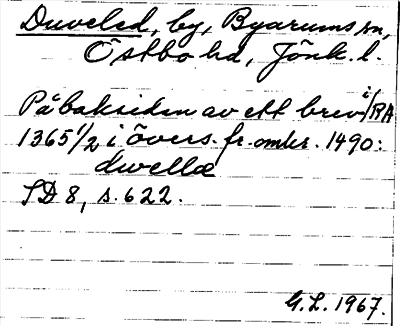 Duveled, by, Byarums sn,
Östbo hd, Jönk. l.
På baksidan av ett brev i RA
1365 1/2 i övers. fr. omkr. 1490:
dwellæ
SD 8, s. 622.
G.L. 1967.